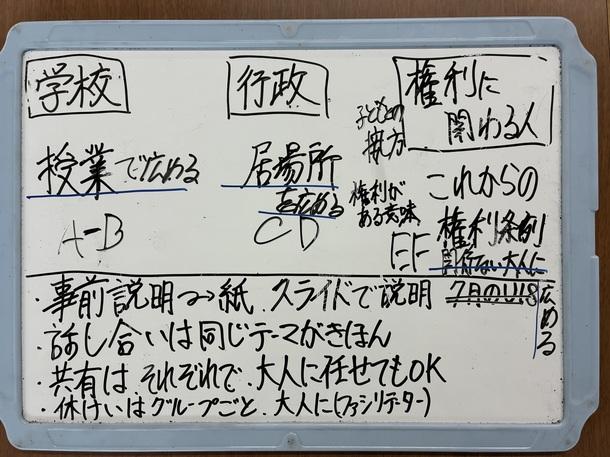 学校
授業で広める
A-B
行政
居場所
を広める
CD
権利に
関わる人
子どもの
権利が
ある意味
これからの
権利条例
関係ない大人に
広める
EF
・事前説明→紙、スライドで説明
・話し合いは同じテーマがきほん
・共有はそれぞれで、大人に任せてもOK
・休けいはグループごと、大人に(ファシリテーター)